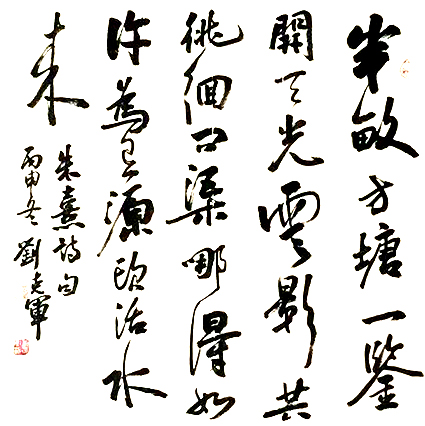 半畝方塘一鑒
開天光雲影共
徘徊问渠哪得如
許為有源頭活水
来
朱熹詩句
丙申冬 劉軍